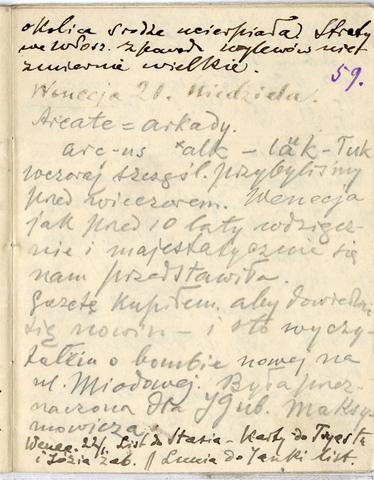 okolica srodze ucierpiała. Straty
we włosz. z powodu wylewów niez
zmiernie wielkie.
59.
Wenecja 21. Niedziela.
Arcate = arkady.
arc-us *alk - läk - Tuk
wczoraj szczęśl. przybyliśmy
przed wieczorem. Wenecja
jak przed 10 laty wdzięcz-
nie i majestatycznie się
nam przedstawiła.
Gazetę kupiłem, aby dowiedzieć
się nowin - i oto wyczy-
tałem o bombie nowej na
ul. Miodowej. Była prze-
naczona dla Jgub. Maksy-
mowicza.
Wenec. 22/1. List do Stasia - Karty do Tryestu
i Józia Zab. // Lunia do Janki list.